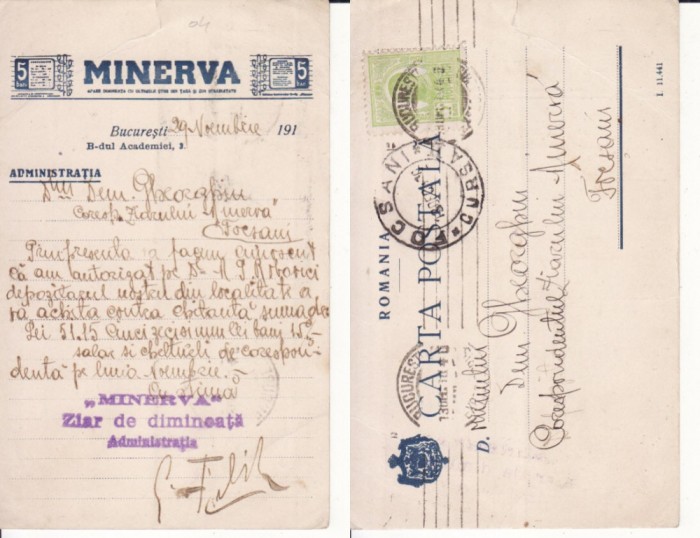 5
bani
MINERVA
5
bani
APARE DIMINEAȚA CU ULTIMELE ȘTIRI DIN ȚARĂ ȘI DIN STREINĂTATE
București 29 Noembrie 191
B-dul Academiei, 3.
ADMINISTRAȚIA
Dlui Dem. Gheorghiu
Coresp. Ziarului Minerva
Focșani
Prin prescuta va facem cunoscut
că am autorizat pe Dl M. I.
depozitarul nostru din localitate a
vă achita contra chitanță suma de
Lei 51.15 Cincizeci și unu lei bani 15
salar si cheltueli de corespon-
dență pe luna Noembrie.
Cu stima
„MINERVA"
Ziar de dimineață
Administrația
ROMANIA
CARTA POSTALA
D.
Dem Gheorghiu
Corespondentul Ziarului Minerva
Focsani
I. 11.441
BUCUREȘTI
FOCSANI
CURSA
BUCURESTI
12